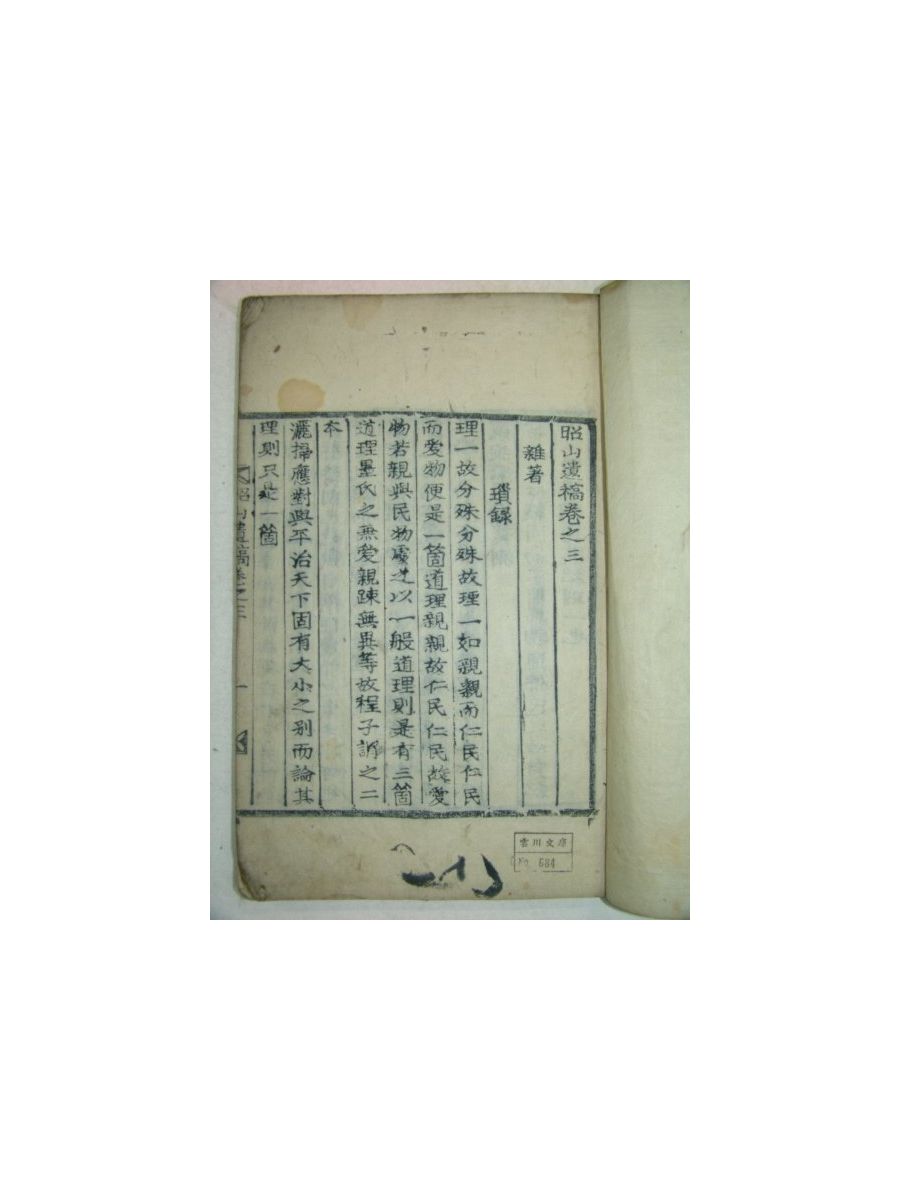 昭山遺稿卷之三
雜著
瑣錄
理一故分殊分殊故理一如親親而仁民仁民
而愛物便是一箇道理親親故仁民仁民故愛
物若親與民物處之以一般道理則是有三箇
道理墨氏之無愛親踈無異等故程子謂之二
本
灑掃應對與平治天下固有大小之別而論其
理則只是一箇
昭山遺稿卷之三
一
雲川文庫
No. 684